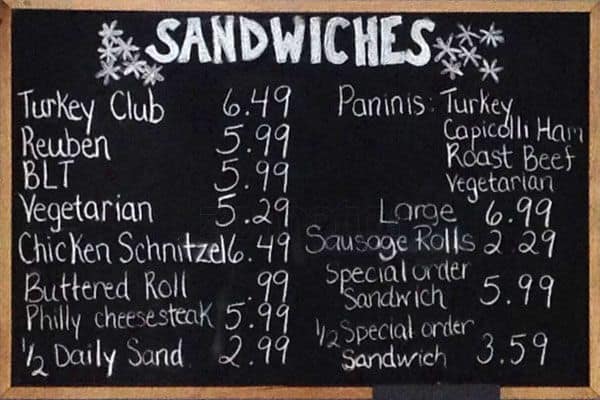 SANDWICHES
Turkey Club 6.49
Reuben 5.99
BLT 5.99
Vegetarian 5.29
Chicken Schnitzel 6.49
Buttered Roll .99
Philly cheesesteak 5.99
1/2 Daily Sand 2.99
Paninis: Turkey
Capicolli Ham
Roast Beef
Vegetarian
Large 6.99
Sausage Rolls 2.29
Special order
Sandwich 5.99
1/2 Special order
Sandwich 3.59